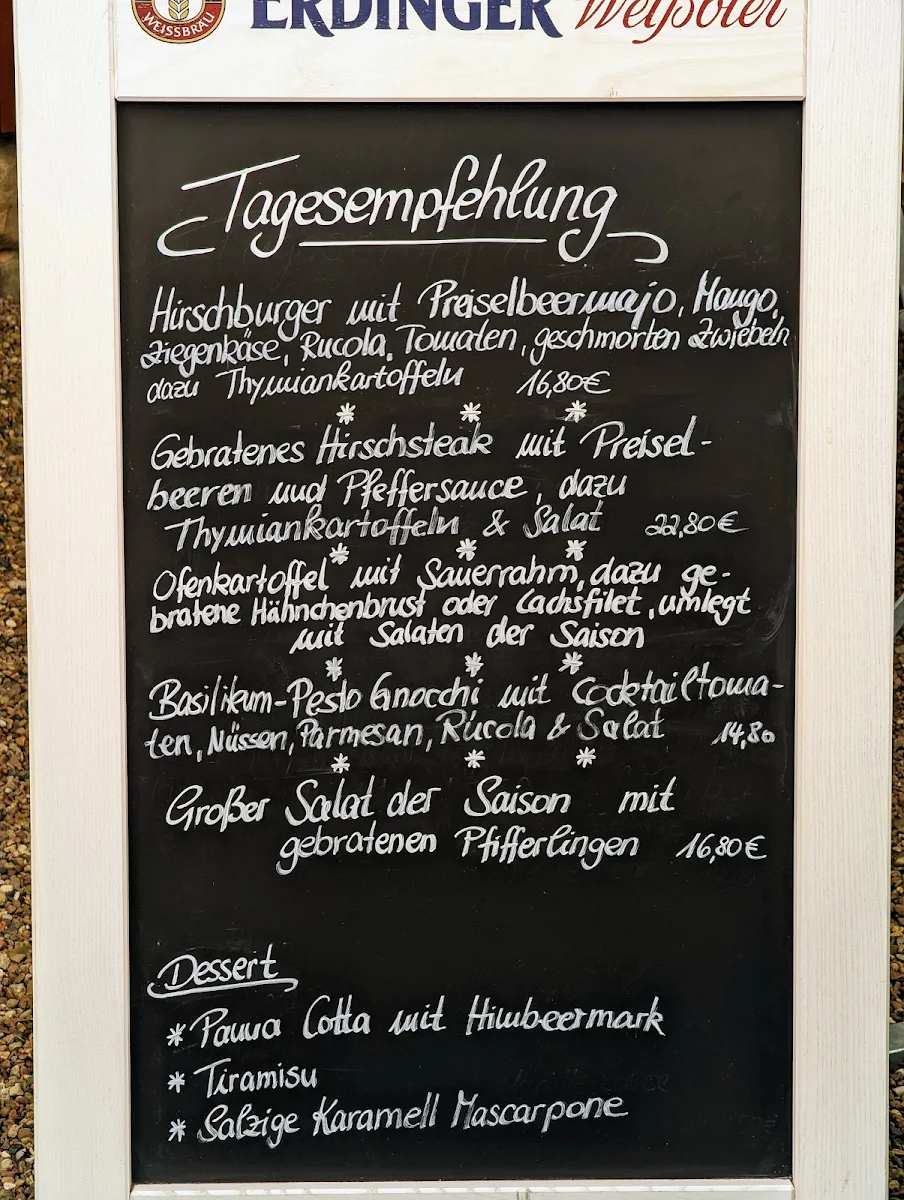 WEISSBRÄU
ERDINGER Weißbier
Tagesempfehlung
Hirschburger mit Preiselbeermajo, Mango,
Ziegenkäse, Rucola, Tomaten, geschmorten Zwiebeln
dazu Thymiankartoffeln 16,80€
* * *
Gebratenes Hirschsteak mit Preisel-
beeren und Pfeffersauce, dazu
Thymiankartoffeln & Salat 22,80€
* * *
Ofenkartoffel mit Sauerrahm, dazu ge-
bratene Hähnchenbrust oder Lachsfilet, umlegt
mit Salaten der Saison
* * *
Basilikum-Pesto Gnocchi mit Cocktailtoma-
ten, Nüssen, Parmesan, Rucola & Salat 14,80
* * *
Großer Salat der Saison mit
gebratenen Pfifferlingen 16,80€
Dessert
* Panna Cotta mit Himbeermark
* Tiramisu
* Salzige Karamell Mascarpone